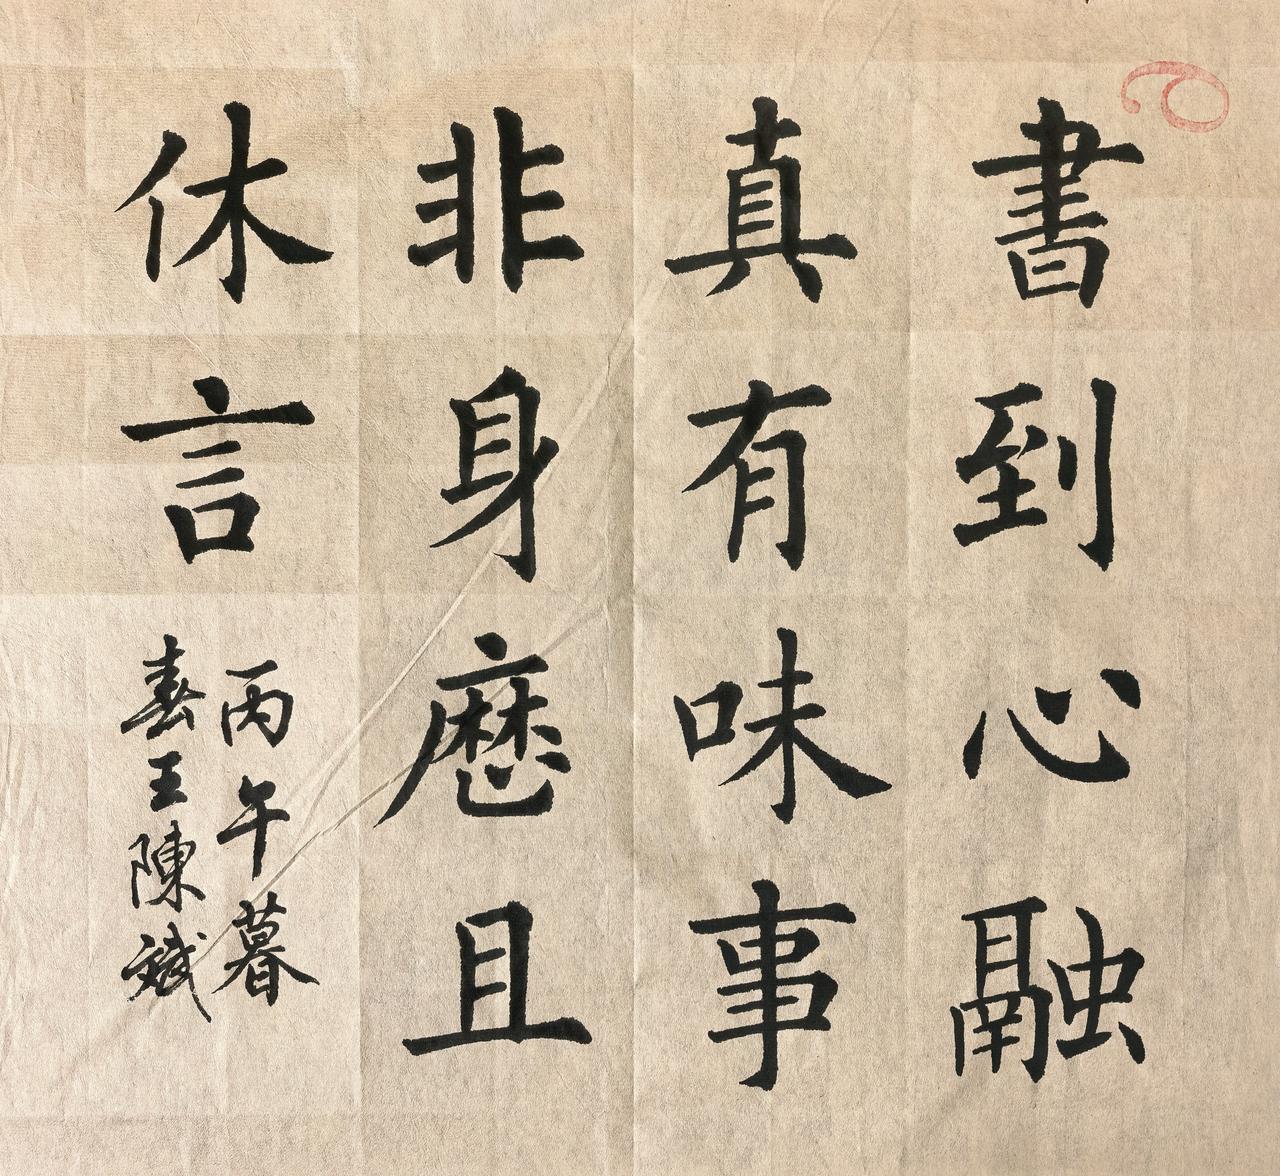 書到心融
真有味事
非身歷且
休言
丙午暮
春王陳斌